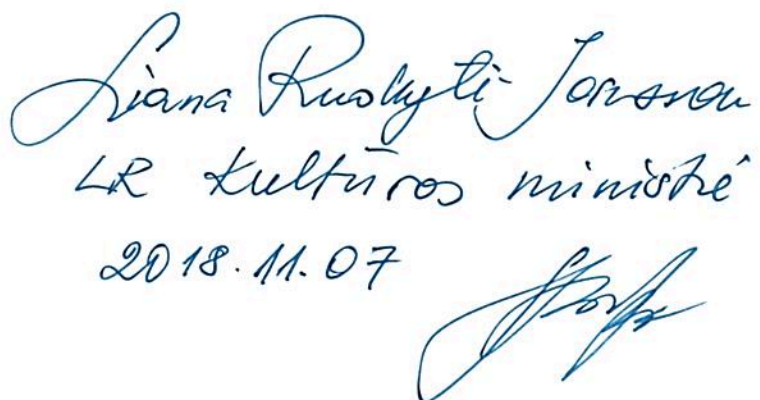 Liana Ruokytė-Jonsson
LR Kultūros ministrė
2018.11.07